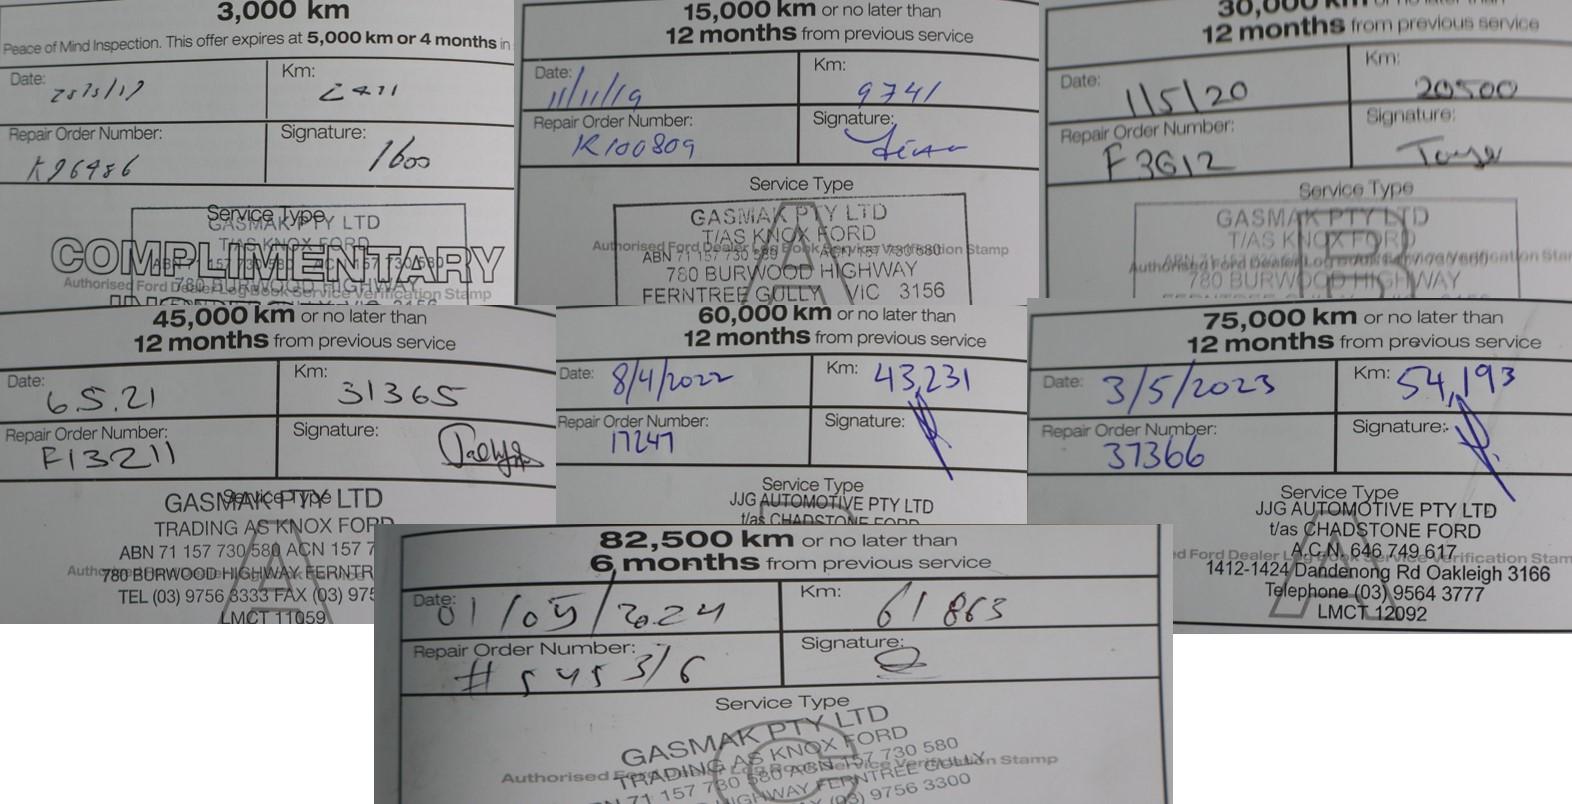 3,000 km
Peace of Mind Inspection. This offer expires at 5,000 km or 4 months in
Date: Km:
Repair Order Number: K96486 Signature: 1600
Service Type
GASMAK PTY LTD
T/AS KNOX FORD
COMPLIMENTARY
Authorised Ford Dealer Log Book Service Verification Stamp
780 BURWOOD HIGHWAY
15,000 km or no later than
12 months from previous service
Date: 11/11/19 Km: 9741
Repair Order Number: K100809 Signature:
Service Type
GASMAK PTY LTD
T/AS KNOX FORD
Authorised Ford Dealer Log Book Service Verification Stamp
ABN 71 157 730 589 ACN 157 730 580
780 BURWOOD HIGHWAY
FERNTREE GULLY VIC 3156
A
30,000 km or no later than
12 months from previous service
Date: 1/5/20 Km: 20500
Repair Order Number: F3612 Signature:
Service Type
GASMAK PTY LTD
T/AS KNOX FORD
Authorised Ford Dealer Log Book Service Verification Stam
780 BURWOOD HIGHWAY
45,000 km or no later than
12 months from previous service
Date: 6.5.21 Km: 31365
Repair Order Number: F13211 Signature:
Service Type
GASMAK PTY LTD
TRADING AS KNOX FORD
ABN 71 157 730 580 ACN 157 7
780 BURWOOD HIGHWAY FERNTR
TEL (03) 9756 3333 FAX (03) 975
LMCT 11059
A
60,000 km or no later than
12 months from previous service
Date: 8/4/2022 Km: 43,231
Repair Order Number: 17247 Signature:
Service Type
JJG AUTOMOTIVE PTY LTD
t/as CHADSTONE FORD
75,000 km or no later than
12 months from previous service
Date: 3/5/2023 Km: 54,193
Repair Order Number: 37366 Signature:
Service Type
JJG AUTOMOTIVE PTY LTD
t/as CHADSTONE FORD
A.C.N. 646 749 617
d Ford Dealer Log Book Service Verification Stam
1412-1424 Dandenong Rd Oakleigh 3166
Telephone (03) 9564 3777
LMCT 12092
A
82,500 km or no later than
6 months from previous service
Date: 01/05/2024 Km: 61863
Repair Order Number: #545316 Signature:
Service Type
GASMAK PTY LTD
TRADING AS KNOX FORD
Authorised Ford Dealer Log Book Service Verification Stamp
71 157 730 580 ACN 157 730 580
HIGHWAY FERNTREE GULLY
(03) 9756 3300
C